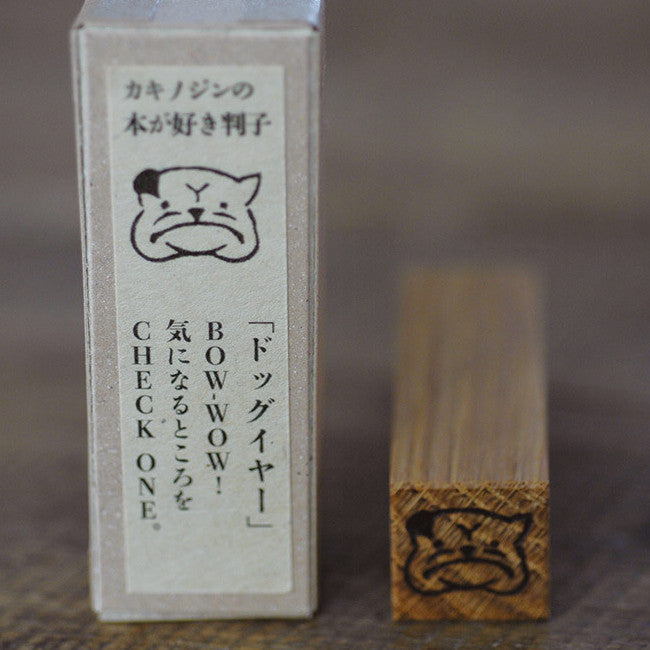 カキノジンの
本が好き判子
「ドッグイヤー」
BOW-WOW!
気になるところを
CHECK ONE。